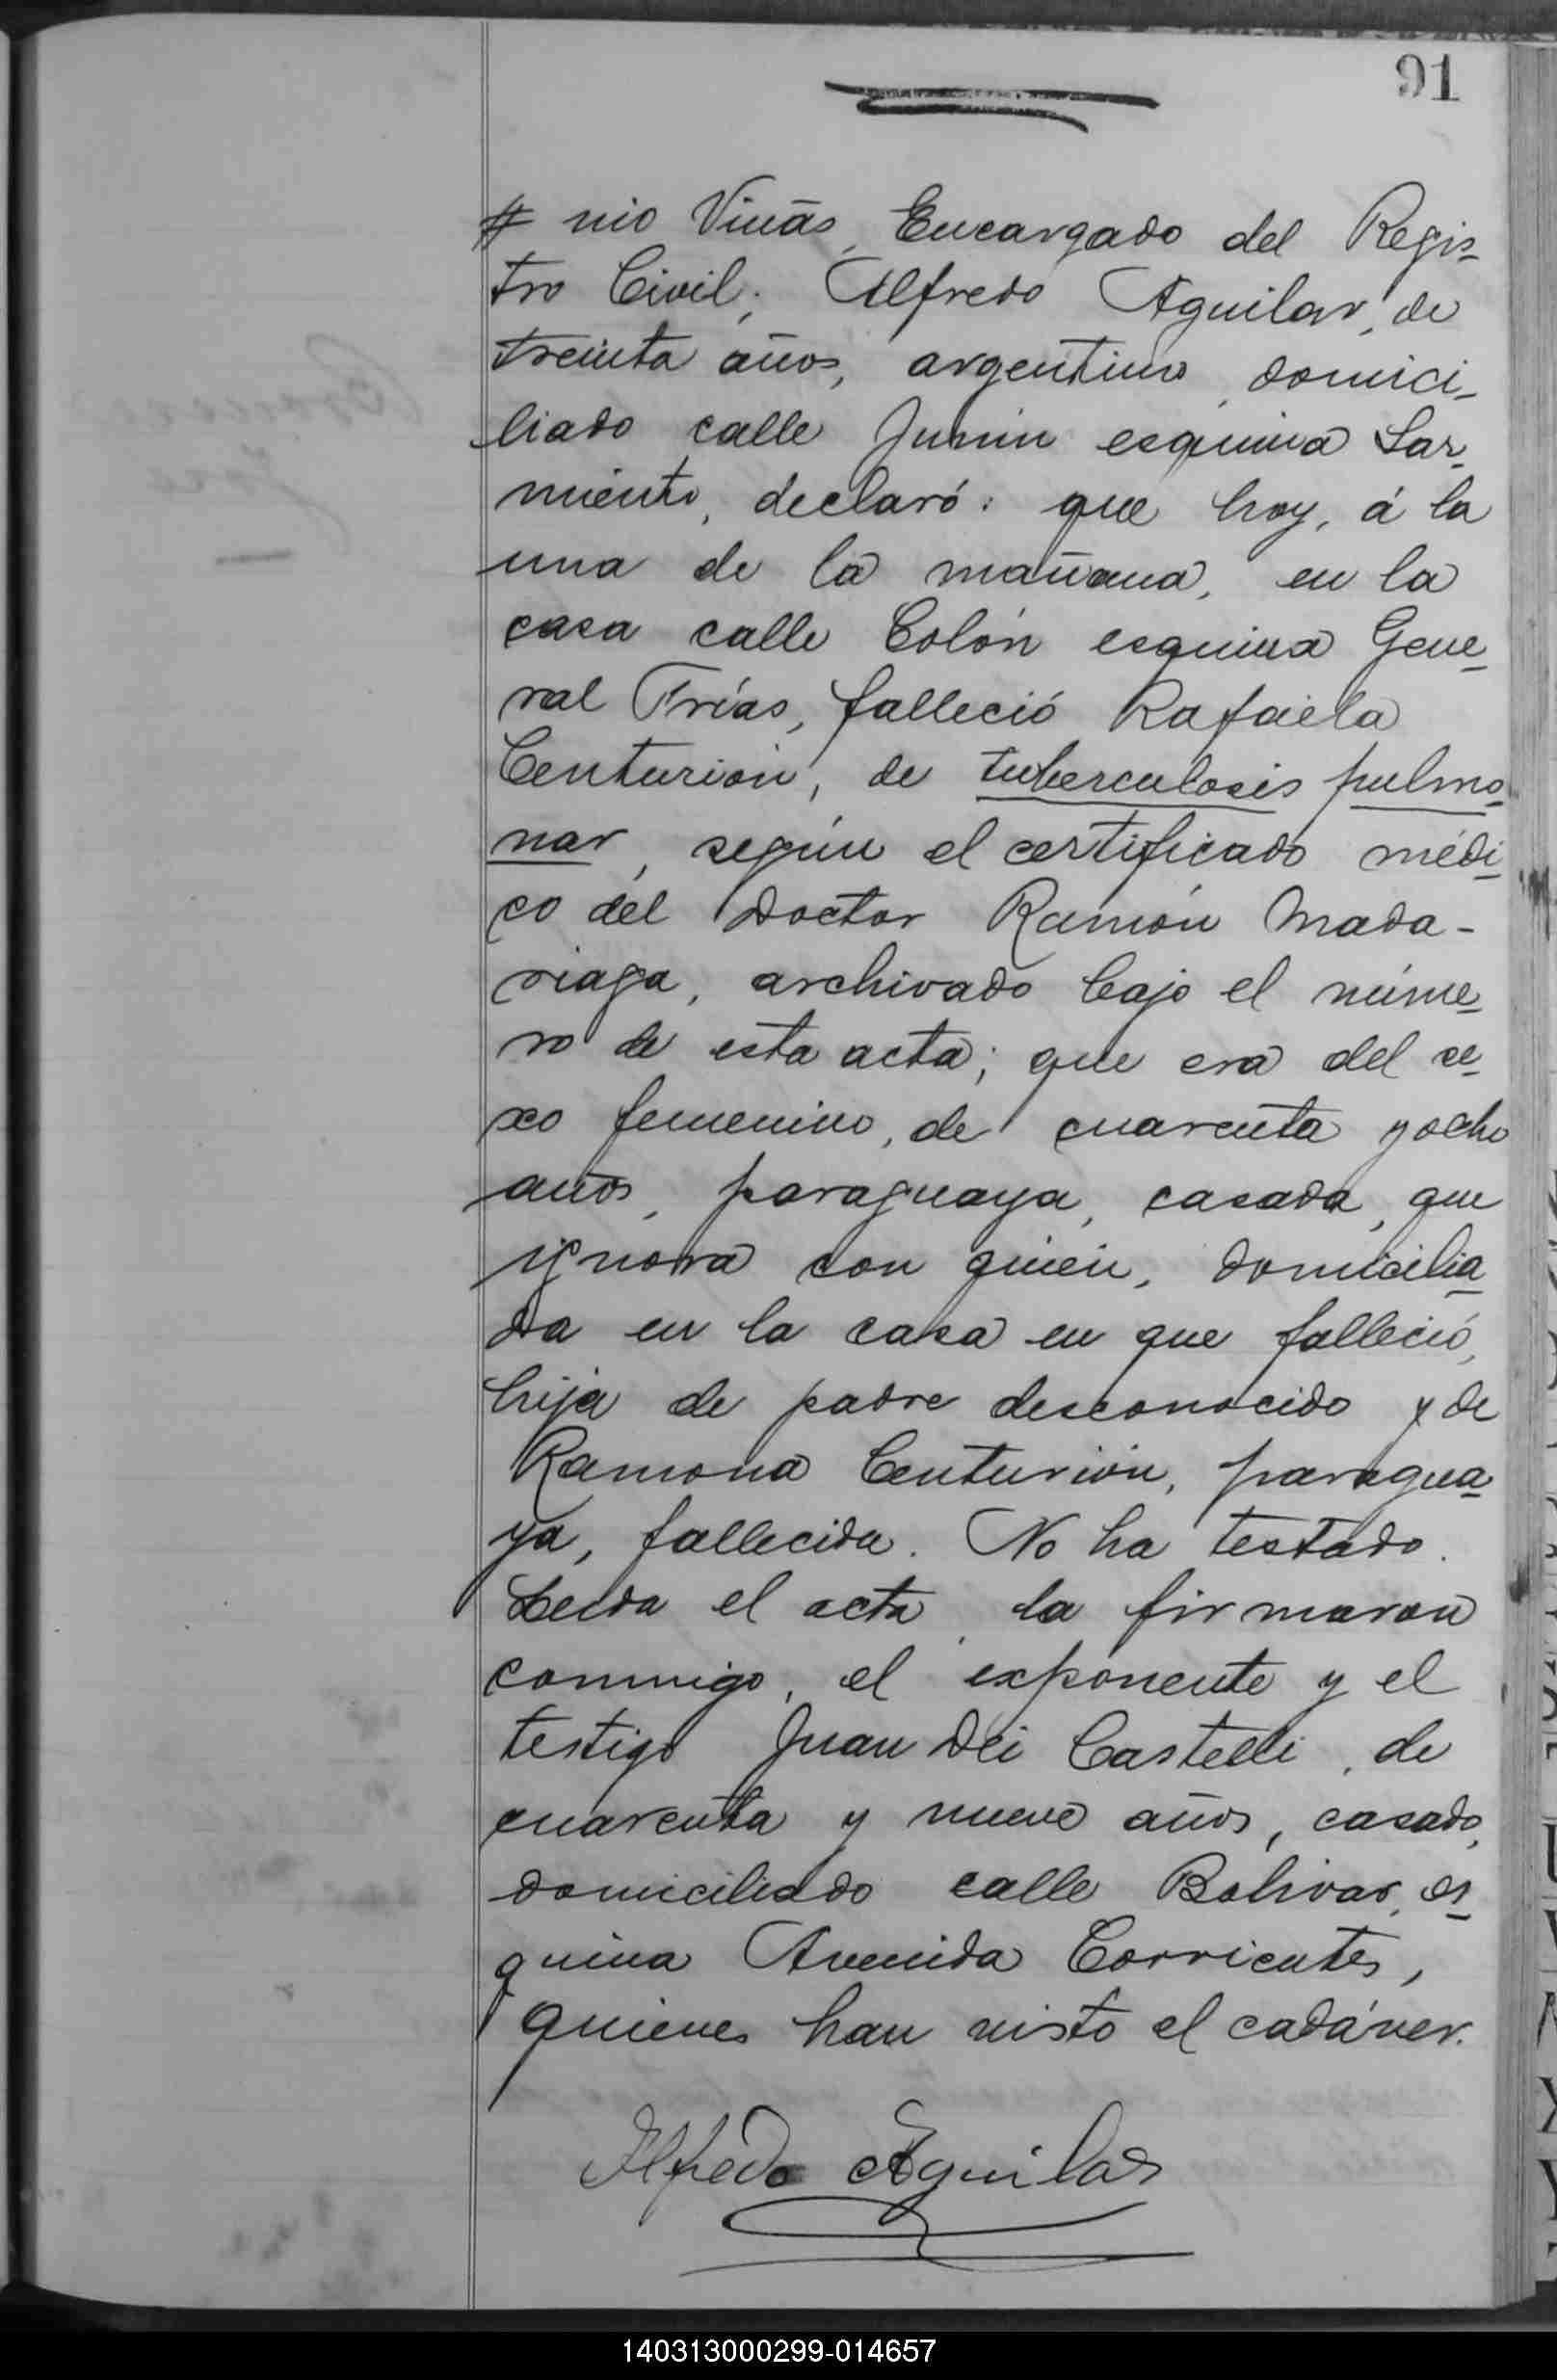 91
# nio Viñas, Encargado del Regis-
tro Civil; Alfredo Aguilar, de
treinta años, argentino, domici-
liado calle Junin esquina Sar-
miento, declaró: que hoy, á la
una de la mañana, en la
casa calle Colón esquina Gene-
ral Frías, falleció Rafaela
Centurión, de tuberculosis pulmo-
nar, según el certificado médi-
co del Doctor Ramón Mada-
riaga, archivado bajo el núme-
ro de esta acta; que era del se-
xo femenino, de cuarenta y ocho
años, paraguaya, casada, que
ignora con quién, domicilia-
da en la casa en que falleció,
hija de padre desconocido y de
Ramona Centurión, paragua-
ya, fallecida. No ha testado.
Leida el acta, la firmaron
conmigo, el exponente y el
testigo Juan Dei Castelli, de
cuarenta y nueve años, casado,
domiciliado calle Bolivar, es-
quina Avenida Corrientes,
quienes han visto el cadáver.
Alfredo Aguilar
140313000299-014657